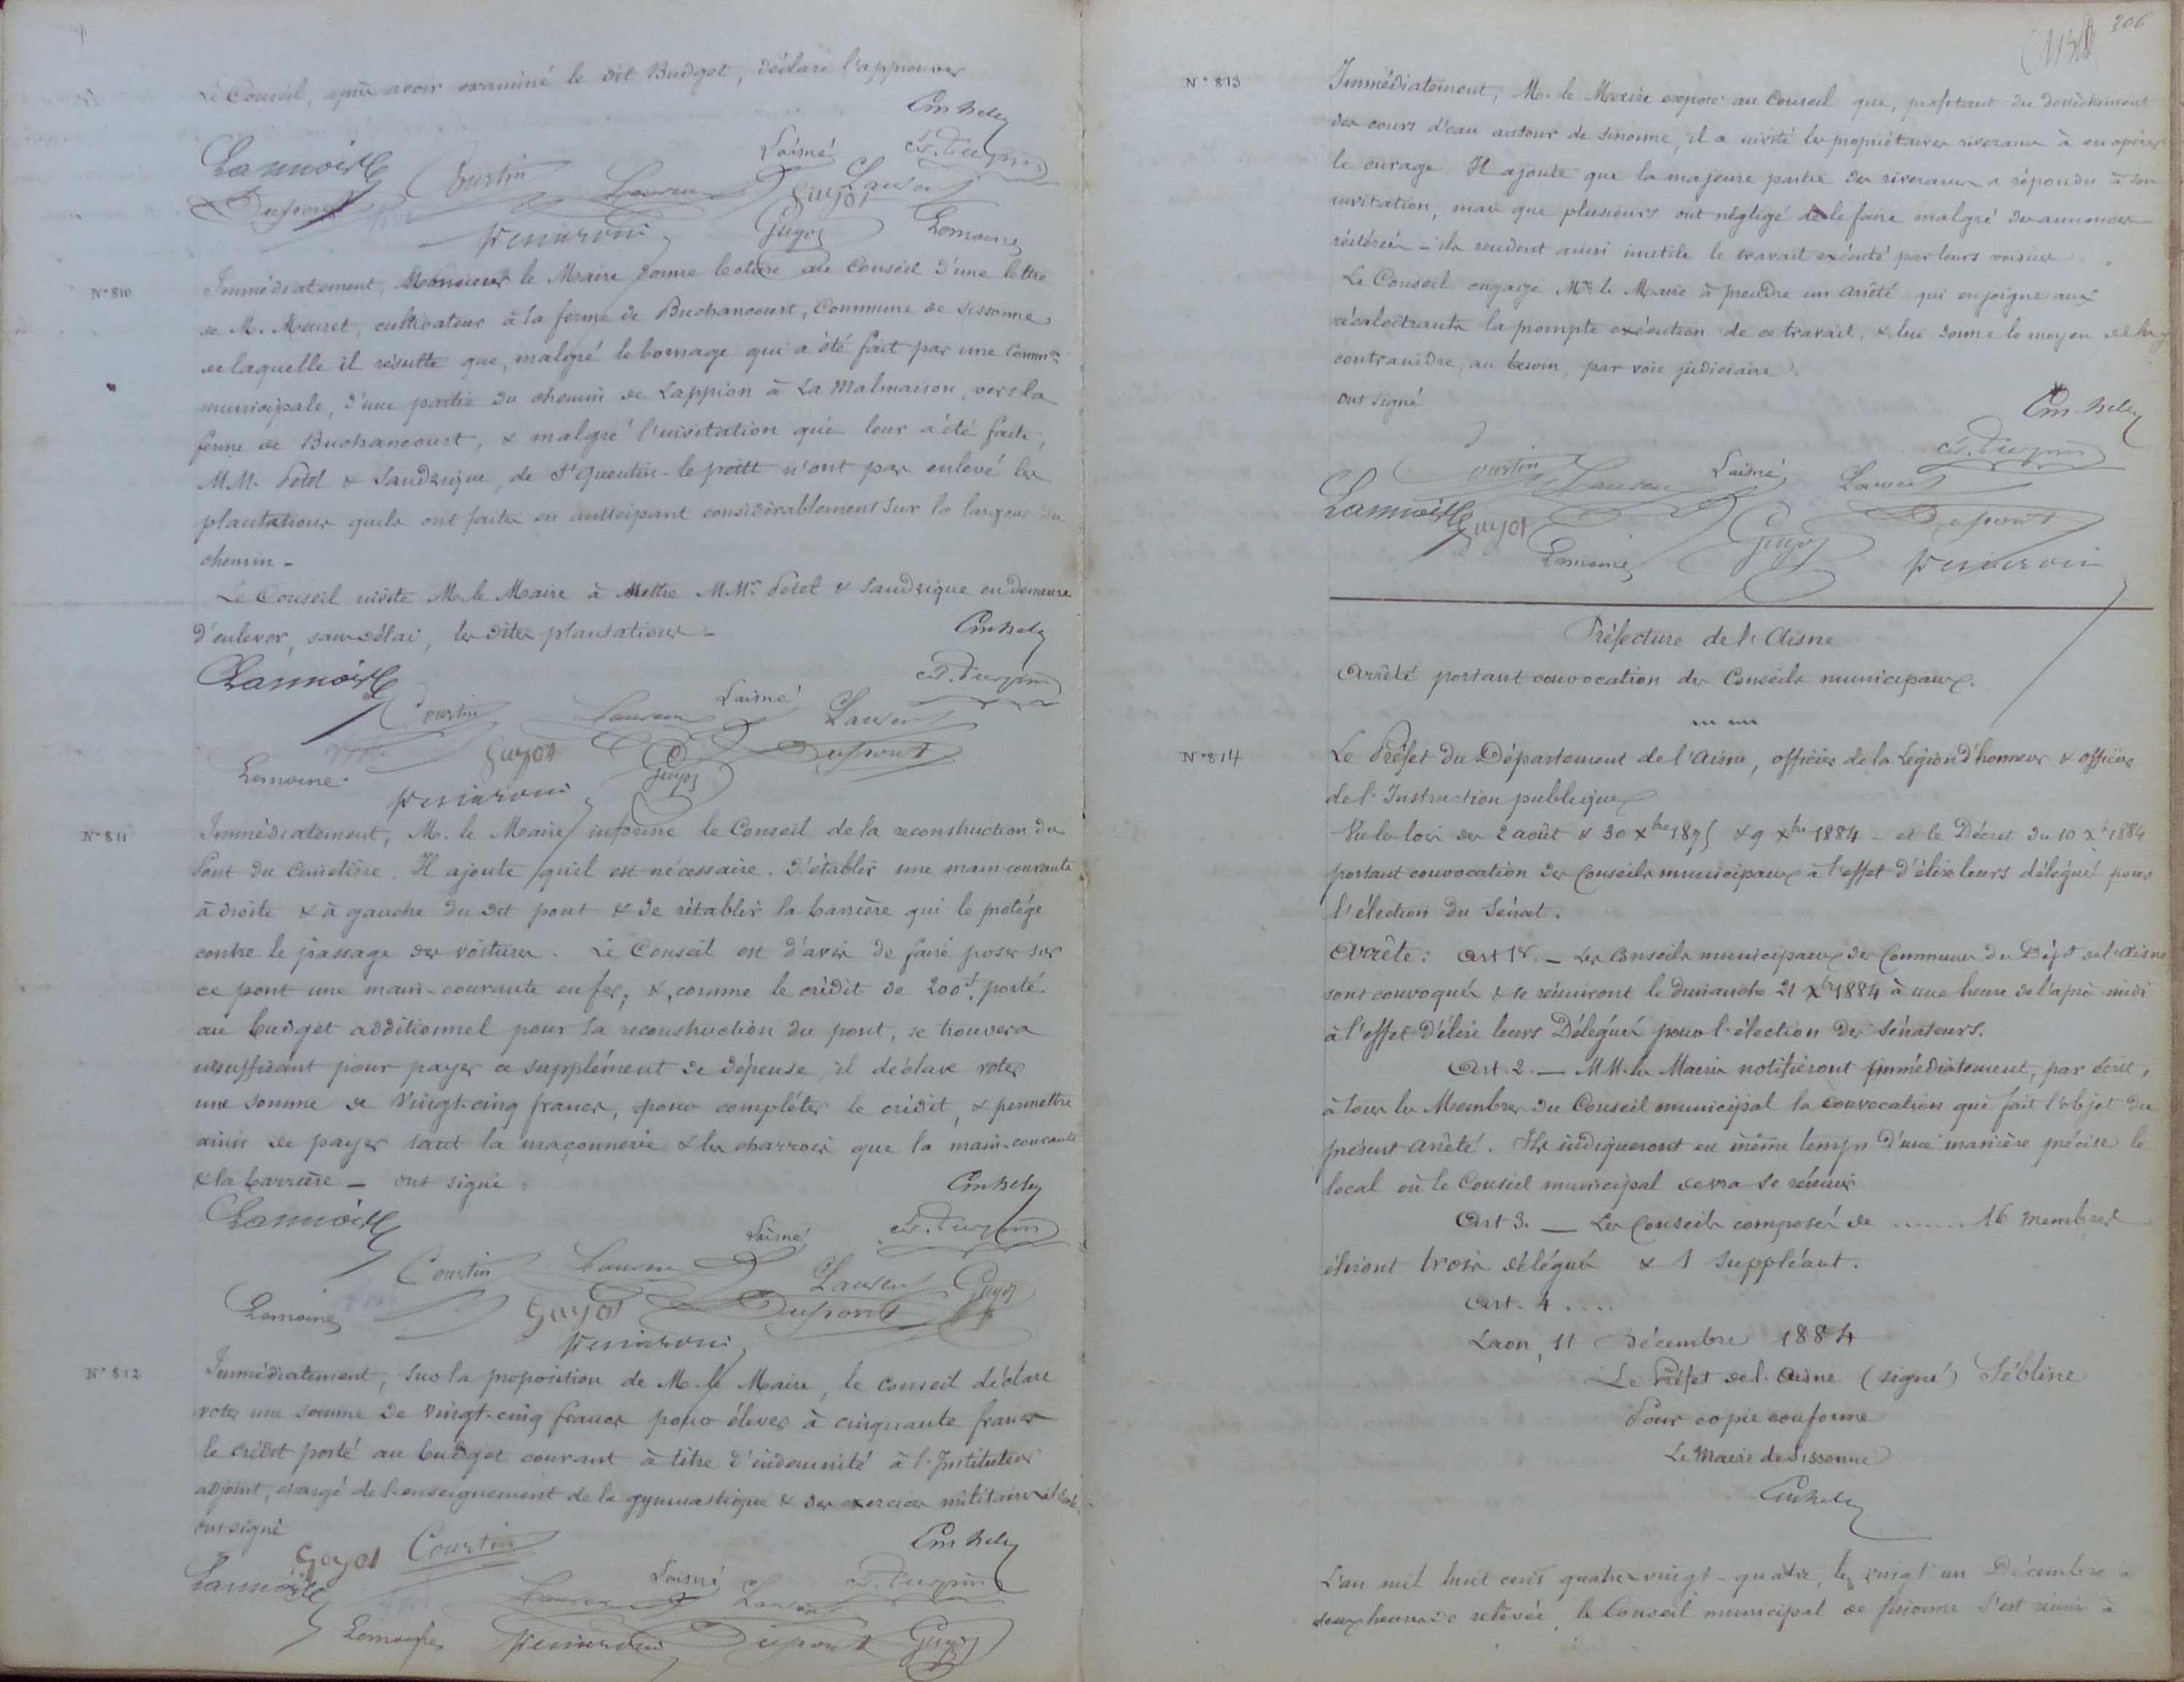 Le Conseil, après avoir examiné le dit Budget, déclare l'approuver
Lannois Courtin Laurent Laisné Guyot Laurent
Dupont Guyot Lemoine
N° 810
Immédiatement, Monsieur le Maire donne lecture au Conseil d'une lettre
de M. Meuret, cultivateur à la ferme de Buchancourt, Commune de Sissonne
de laquelle il résulte que, malgré le bornage qui a été fait par une Comm.on
municipale, d'une partie du chemin de Lappion à La Malmaison, vers la
ferme de Buchancourt, & malgré l'invitation qui leur a été faite,
MM. Petel & Landrique, de St Quentin-le petit n'ont pas enlevé les
plantations qu'ils ont faites en anticipant considérablement sur la largeur du
chemin -
Le Conseil invite M. le Maire à Mettre MM.rs Petel & Landrique en demeure
d'enlever, sans délai, les dites plantations -
Lannois
Courtin Laurent Laisné Laurent
Lemoine Guyot Guyot Dupont
N° 811
Immédiatement, M. le Maire informe le Conseil de la reconstruction du
Pont du Cimetière. Il ajoute qu'il est nécessaire. d'établir une main courante
à droite & à gauche du dit pont & de rétablir la barrière qui le protége
contre le passage des voitures. Le Conseil est d'avis de faire poser sur
ce pont une main-courante en fer; &, comme le crédit de 200f. porté
au budget additionnel pour la reconstruction du pont, se trouvera
insuffisant pour payer ce supplément de dépense, il déclare voter
une somme de Vingt-cinq francs, pour compléter le crédit, & permettre
ainsi de payer tant la maçonnerie & les charrois que la main-courante
& la barrière - ont signé :
Lannois
Courtin Laurent Laisné Laurent Guyot
Lemoine Guyot Dupont
N° 812
Immédiatement, sur la proposition de M. le Maire, le Conseil déclare
voter une somme de vingt-cinq francs pour élever à cinquante francs
le crédit porté au budget courant à titre d'indemnité à l'Instituteur
adjoint, chargé de l'enseignement de la gymnastique & des exercices militaires
ont signé
Guyot Courtin
Lannois Laurent Laisné Laurent
Lemoine Dupont Guyot
206
N° 813
Immédiatement, M. le Maire expose au Conseil que, profitant du dessèchement
des cours d'eau autour de Sissonne, il a invité les propriétaires riverains à en opérer
le curage. Il ajoute que la majeure partie des riverains a répondu à son
invitation, mais que plusieurs ont négligé de le faire malgré des annonces
réitérées - ils rendent ainsi inutile le travail exécuté par leurs voisins.
Le Conseil engage Mr le Maire à prendre un arrêté qui enjoigne aux
récalcitrants la prompte exécution de ce travail, & lui donne le moyen de les y
contraindre, au besoin, par voie judiciaire.
ont signé
Courtin Laurent Laisné Laurent
Lannois Guyot Lemoine Guyot Dupont
Préfecture de l'Aisne
Arrêté portant convocation des Conseils municipaux.
N° 814
Le Préfet du Département de l'Aisne, officier de la Légion d'honneur & officier
de l'Instruction publique
Vu les lois des 2 août & 30 xbre 1875 & 9 xbre 1884 - et le Décret du 10 xbre 1884
portant convocation des Conseils municipaux à l'effet d'élire leurs délégués pour
l'élection du Sénat.
Arrête : Art 1er. - Les Conseils municipaux des Communes du Dépt de l'Aisne
sont convoqués & se réuniront le dimanche 21 Xbre 1884 à une heure de l'après-midi
à l'effet d'élire leurs Délégués pour l'élection des Sénateurs.
Art. 2. - MM. les Maires notifieront immédiatement, par écrit,
à tous les Membres du Conseil municipal la convocation qui fait l'objet du
présent arrêté. Ils indiqueront en même temps d'une manière précise le
local où le Conseil municipal devra se réunir.
Art 3. - Les Conseils composés de ....... 16 membres
éliront trois délégués & 1 suppléant.
Art. 4 ....
Laon, 11 Décembre 1884
Le Préfet de l'Aisne (signé) Sébline
Pour copie conforme
Le Maire de Sissonne
L'an mil huit cent quatre-vingt-quatre, le vingt-un Décembre à
deux heures de relevée, le Conseil municipal de Sissonne s'est réuni à